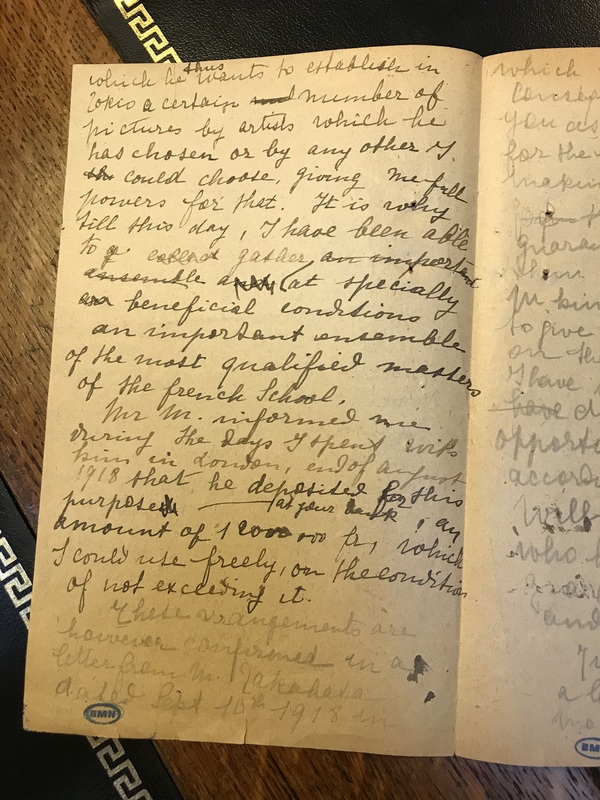 thus
which he wants to establish in
Tokio a certain number of
pictures by artists which he
has chosen or by any other I.
could choose, giving me full
powers for that. It is why
till this day, I have been able
to gather an important
ensemble at specially
beneficial conditions
an important ensemble
of the most qualified masters
of the french School.
Mr M. informed me
during the days I spent with
him in London, end of august
1918 that he deposited for this
purpose at your bank, an
amount of 1 000 000 fr, which
I could use freely, on the condition
of not exceeding it.
These arrangements are
however confirmed in a
letter from M. Takahata
dated Sept 10th 1918 in
BMN
which
you as
for the
makin
guaran
them
to give
on the
I have
have d
opportu
accord
will
who
and
a l
me
BMN